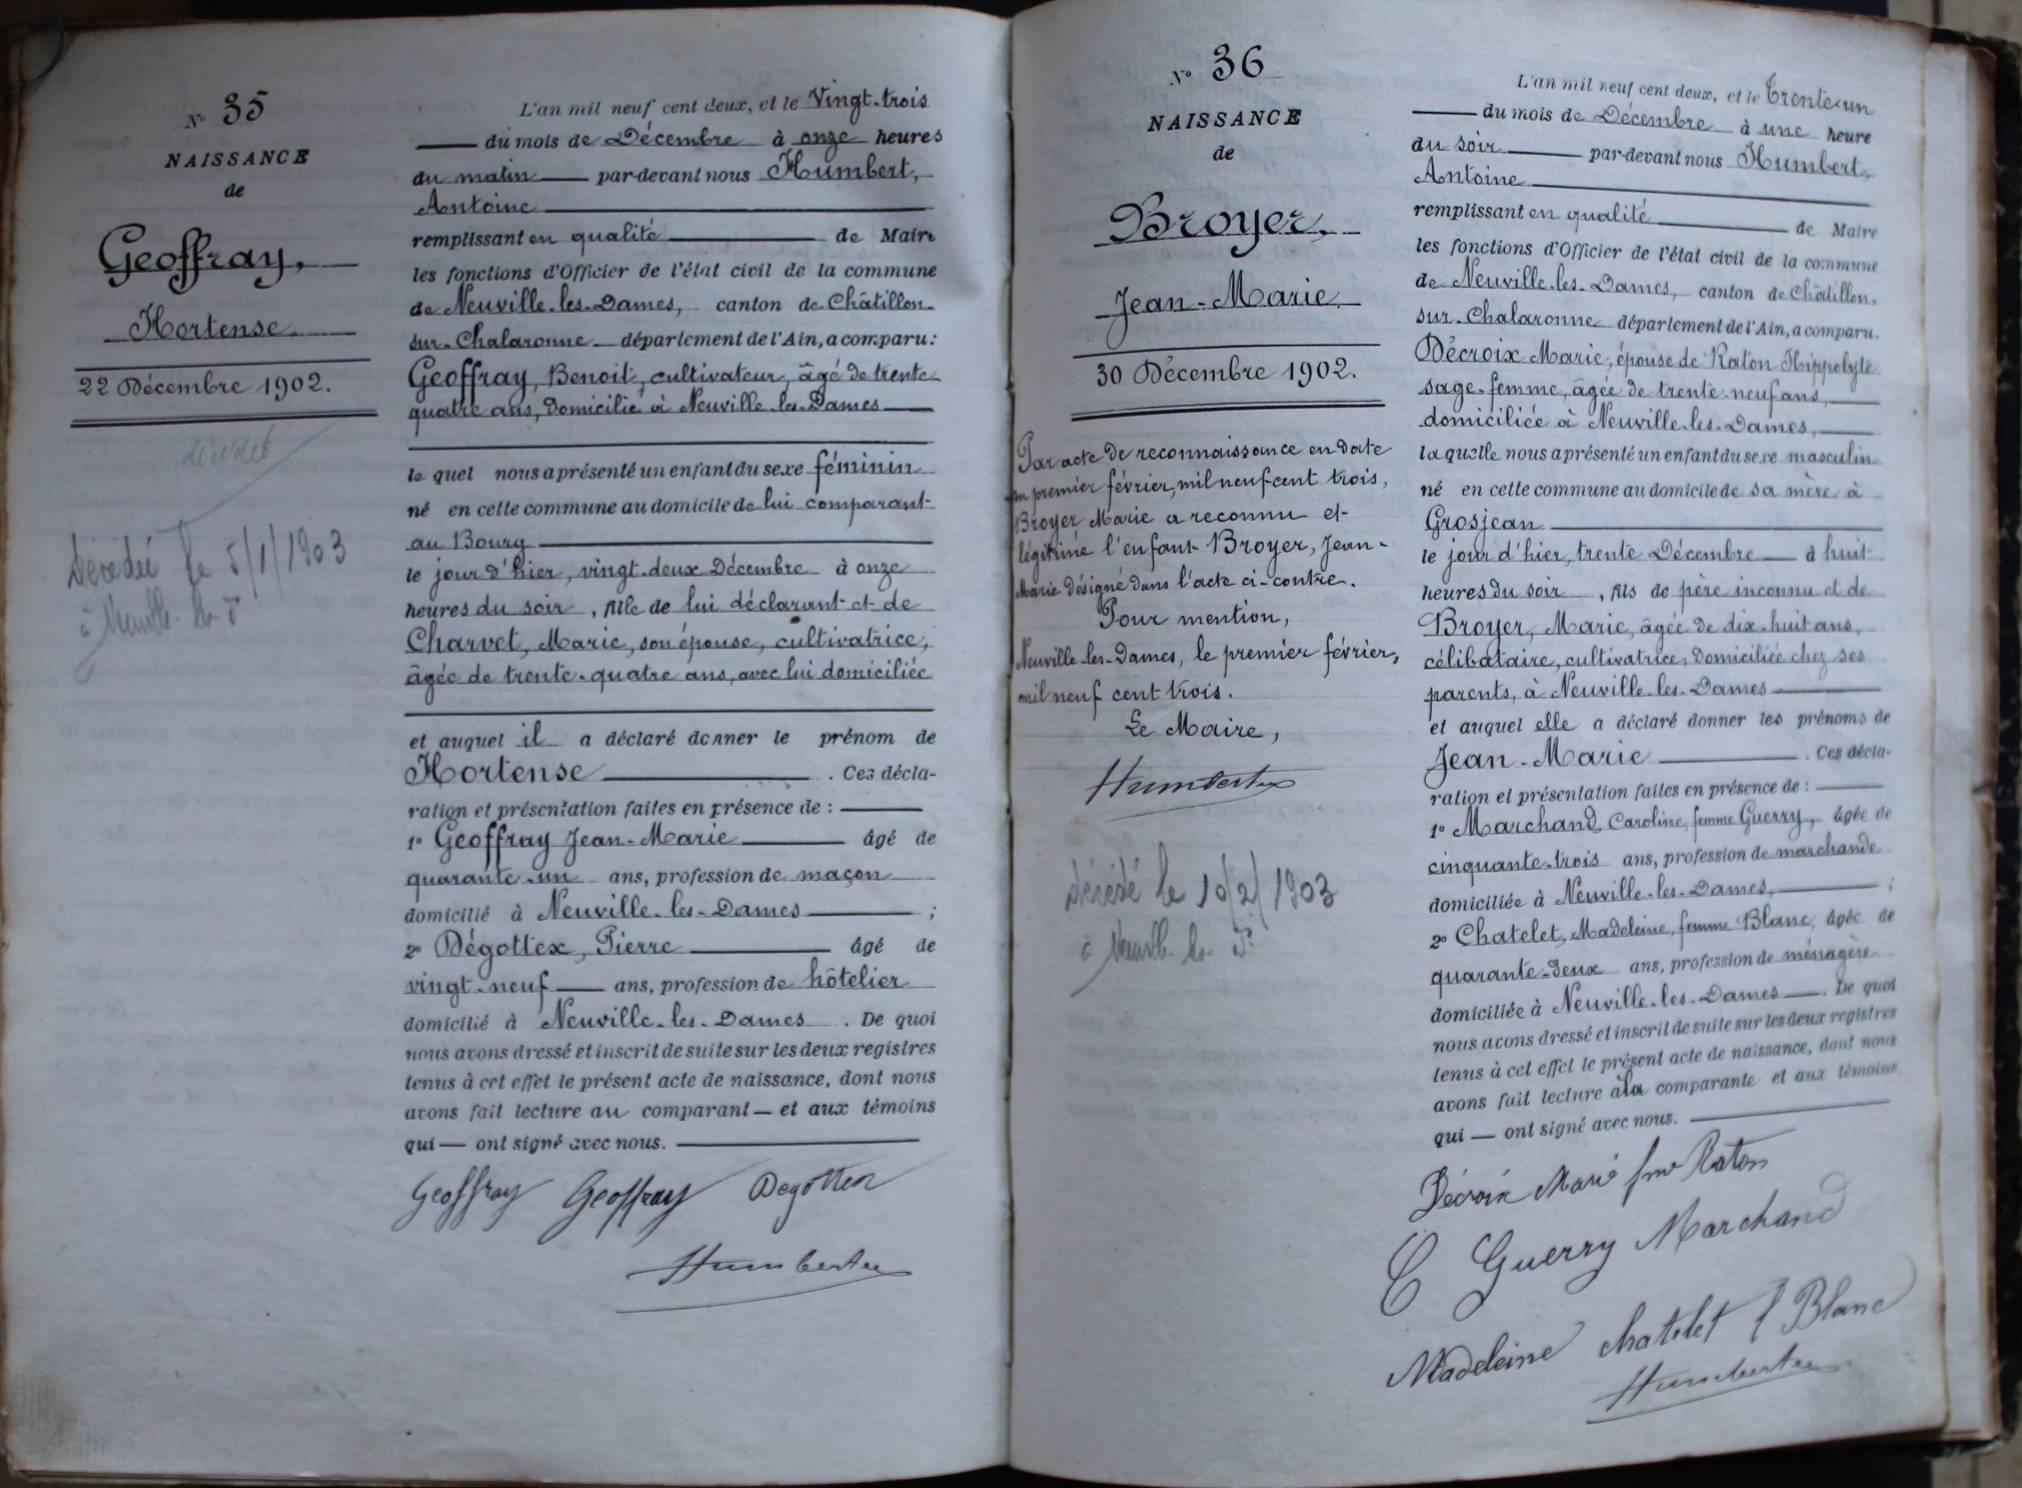 N° 35
NAISSANCE
de
Geoffray,
Hortense
22 Décembre 1902.
décédée
Décédée le 5/1/1903
à Neuville-les-D
L'an mil neuf cent deux, et le Vingt-trois
du mois de Décembre à onze heures
du matin par-devant nous Humbert,
Antoine
remplissant en qualité de Maire
les fonctions d'Officier de l'état civil de la commune
de Neuville-les-Dames, canton de Châtillon-
sur-Chalaronne département de l'Ain, a comparu:
Geoffray, Benoit, cultivateur, âgé de trente-
quatre ans, domicilié à Neuville-les-Dames
le quel nous a présenté un enfant du sexe féminin
né en cette commune au domicile de lui comparant
au Bourg
le jour d'hier, vingt-deux Décembre à onze
heures du soir, fille de lui déclarant et de
Charvet, Marie, son épouse, cultivatrice,
âgée de trente-quatre ans, avec lui domiciliée
et auquel il a déclaré donner le prénom de
Hortense. Ces décla-
ration et présentation faites en présence de :
1° Geoffray Jean-Marie âgé de
quarante-un ans, profession de maçon
domicilié à Neuville-les-Dames ;
2° Dégottex, Pierre âgé de
vingt-neuf ans, profession de hôtelier
domicilié à Neuville-les-Dames. De quoi
nous avons dressé et inscrit de suite sur les deux registres
tenus à cet effet le présent acte de naissance, dont nous
avons fait lecture au comparant et aux témoins
qui ont signé avec nous.
Geoffray Geoffray Degottex
Humbert
N° 36
NAISSANCE
de
Broyer,
Jean-Marie
30 Décembre 1902.
Par acte de reconnaissance en date
du premier février, mil neuf cent trois,
Broyer Marie a reconnu et
légitimé l'enfant Broyer, Jean-
Marie désigné dans l'acte ci-contre.
Pour mention,
Neuville-les-Dames, le premier février,
mil neuf cent trois.
Le Maire,
Humbert
Décédé le 10/2/1903
à Neuville-les-D
L'an mil neuf cent deux, et le trente-un
du mois de Décembre à une heure
du soir par-devant nous Humbert,
Antoine
remplissant en qualité de Maire
les fonctions d'Officier de l'état civil de la commune
de Neuville-les-Dames, canton de Châtillon-
sur-Chalaronne département de l'Ain, a comparu.
Décroix Marie, épouse de Raton Hippolyte
sage-femme, âgée de trente-neuf ans,
domiciliée à Neuville-les-Dames,
laquelle nous a présenté un enfant du sexe masculin
né en cette commune au domicile de sa mère à
Grosjean
le jour d'hier, trente Décembre à huit
heures du soir, fils de père inconnu et de
Broyer, Marie, âgée de dix-huit ans,
célibataire, cultivatrice, domiciliée chez ses
parents, à Neuville-les-Dames
et auquel elle a déclaré donner les prénoms de
Jean-Marie. Ces décla-
ration et présentation faites en présence de :
1° Marchand Caroline, femme Guerry, âgée de
cinquante-trois ans, profession de marchande
domiciliée à Neuville-les-Dames, ;
2° Chatelet, Madeleine, femme Blanc, âgée de
quarante-deux ans, profession de ménagère
domiciliée à Neuville-les-Dames. De quoi
nous avons dressé et inscrit de suite sur les deux registres
tenus à cet effet le présent acte de naissance, dont nous
avons fait lecture à la comparante et aux témoins
qui ont signé avec nous.
Décroix Marie fme Raton
C Guerry Marchand
Madeleine chatelet f Blanc
Humbert